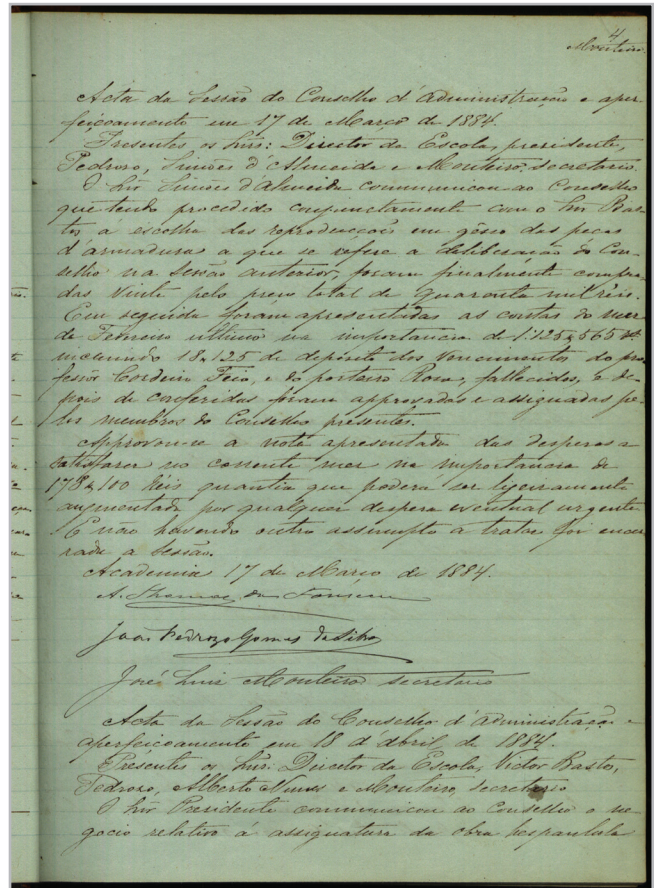 4
Monteiro
Acta da Sessão do Conselho d'Administração e aper-
feiçoamento em 17 de Março de 1884.
Presentes os Snrs: Director da Escola, presidente,
Pedrozo, Simões d'Almeida e Monteiro, secretario.
O Snr Simões d'Almeida communicou ao Conselho
que tendo procedido conjunctamente com o Snr Bas-
tos a escolha das reproducções em gesso das peças
d'armadura a que se refere a deliberação do Con-
selho na sessão anterior, foram finalmente compra-
das vinte pelo preço total de quarenta mil réis.
Em seguida foram apresentadas as contas do mez
de Fevereiro ultimo na importancia de 1:125$565 rs
incluindo 18$125 de depósito dos vencimentos do pro-
fessor Cordeiro Feio, e do porteiro Rosa, fallecidos, e de-
pois de conferidas foram approvadas e assignadas pe-
los membros do Conselho presentes.
Approvou-se a nota apresentada das despezas a
satisfazer no corrente mez na importancia de
178$100 réis quantia que poderá ser ligeiramente
augmentada por qualquer despeza eventual urgente
E não havendo outro assumpto a tratar foi encer-
rada a sessão.
Academia 17 de Março de 1884.
A. Thomaz da Fonseca
João Pedrozo Gomes da Silva
José Luiz Monteiro secretario
Acta da Sessão do Conselho d'Administração e
aperfeiçoamento em 18 d'Abril de 1884.
Presentes os Snrs: Director da Escola, Victor Bastos,
Pedrozo, Alberto Nunes e Monteiro, secretario
O Snr Presidente communicou ao Conselho o ne-
gocio relativo á assignatura da obra hespanhola